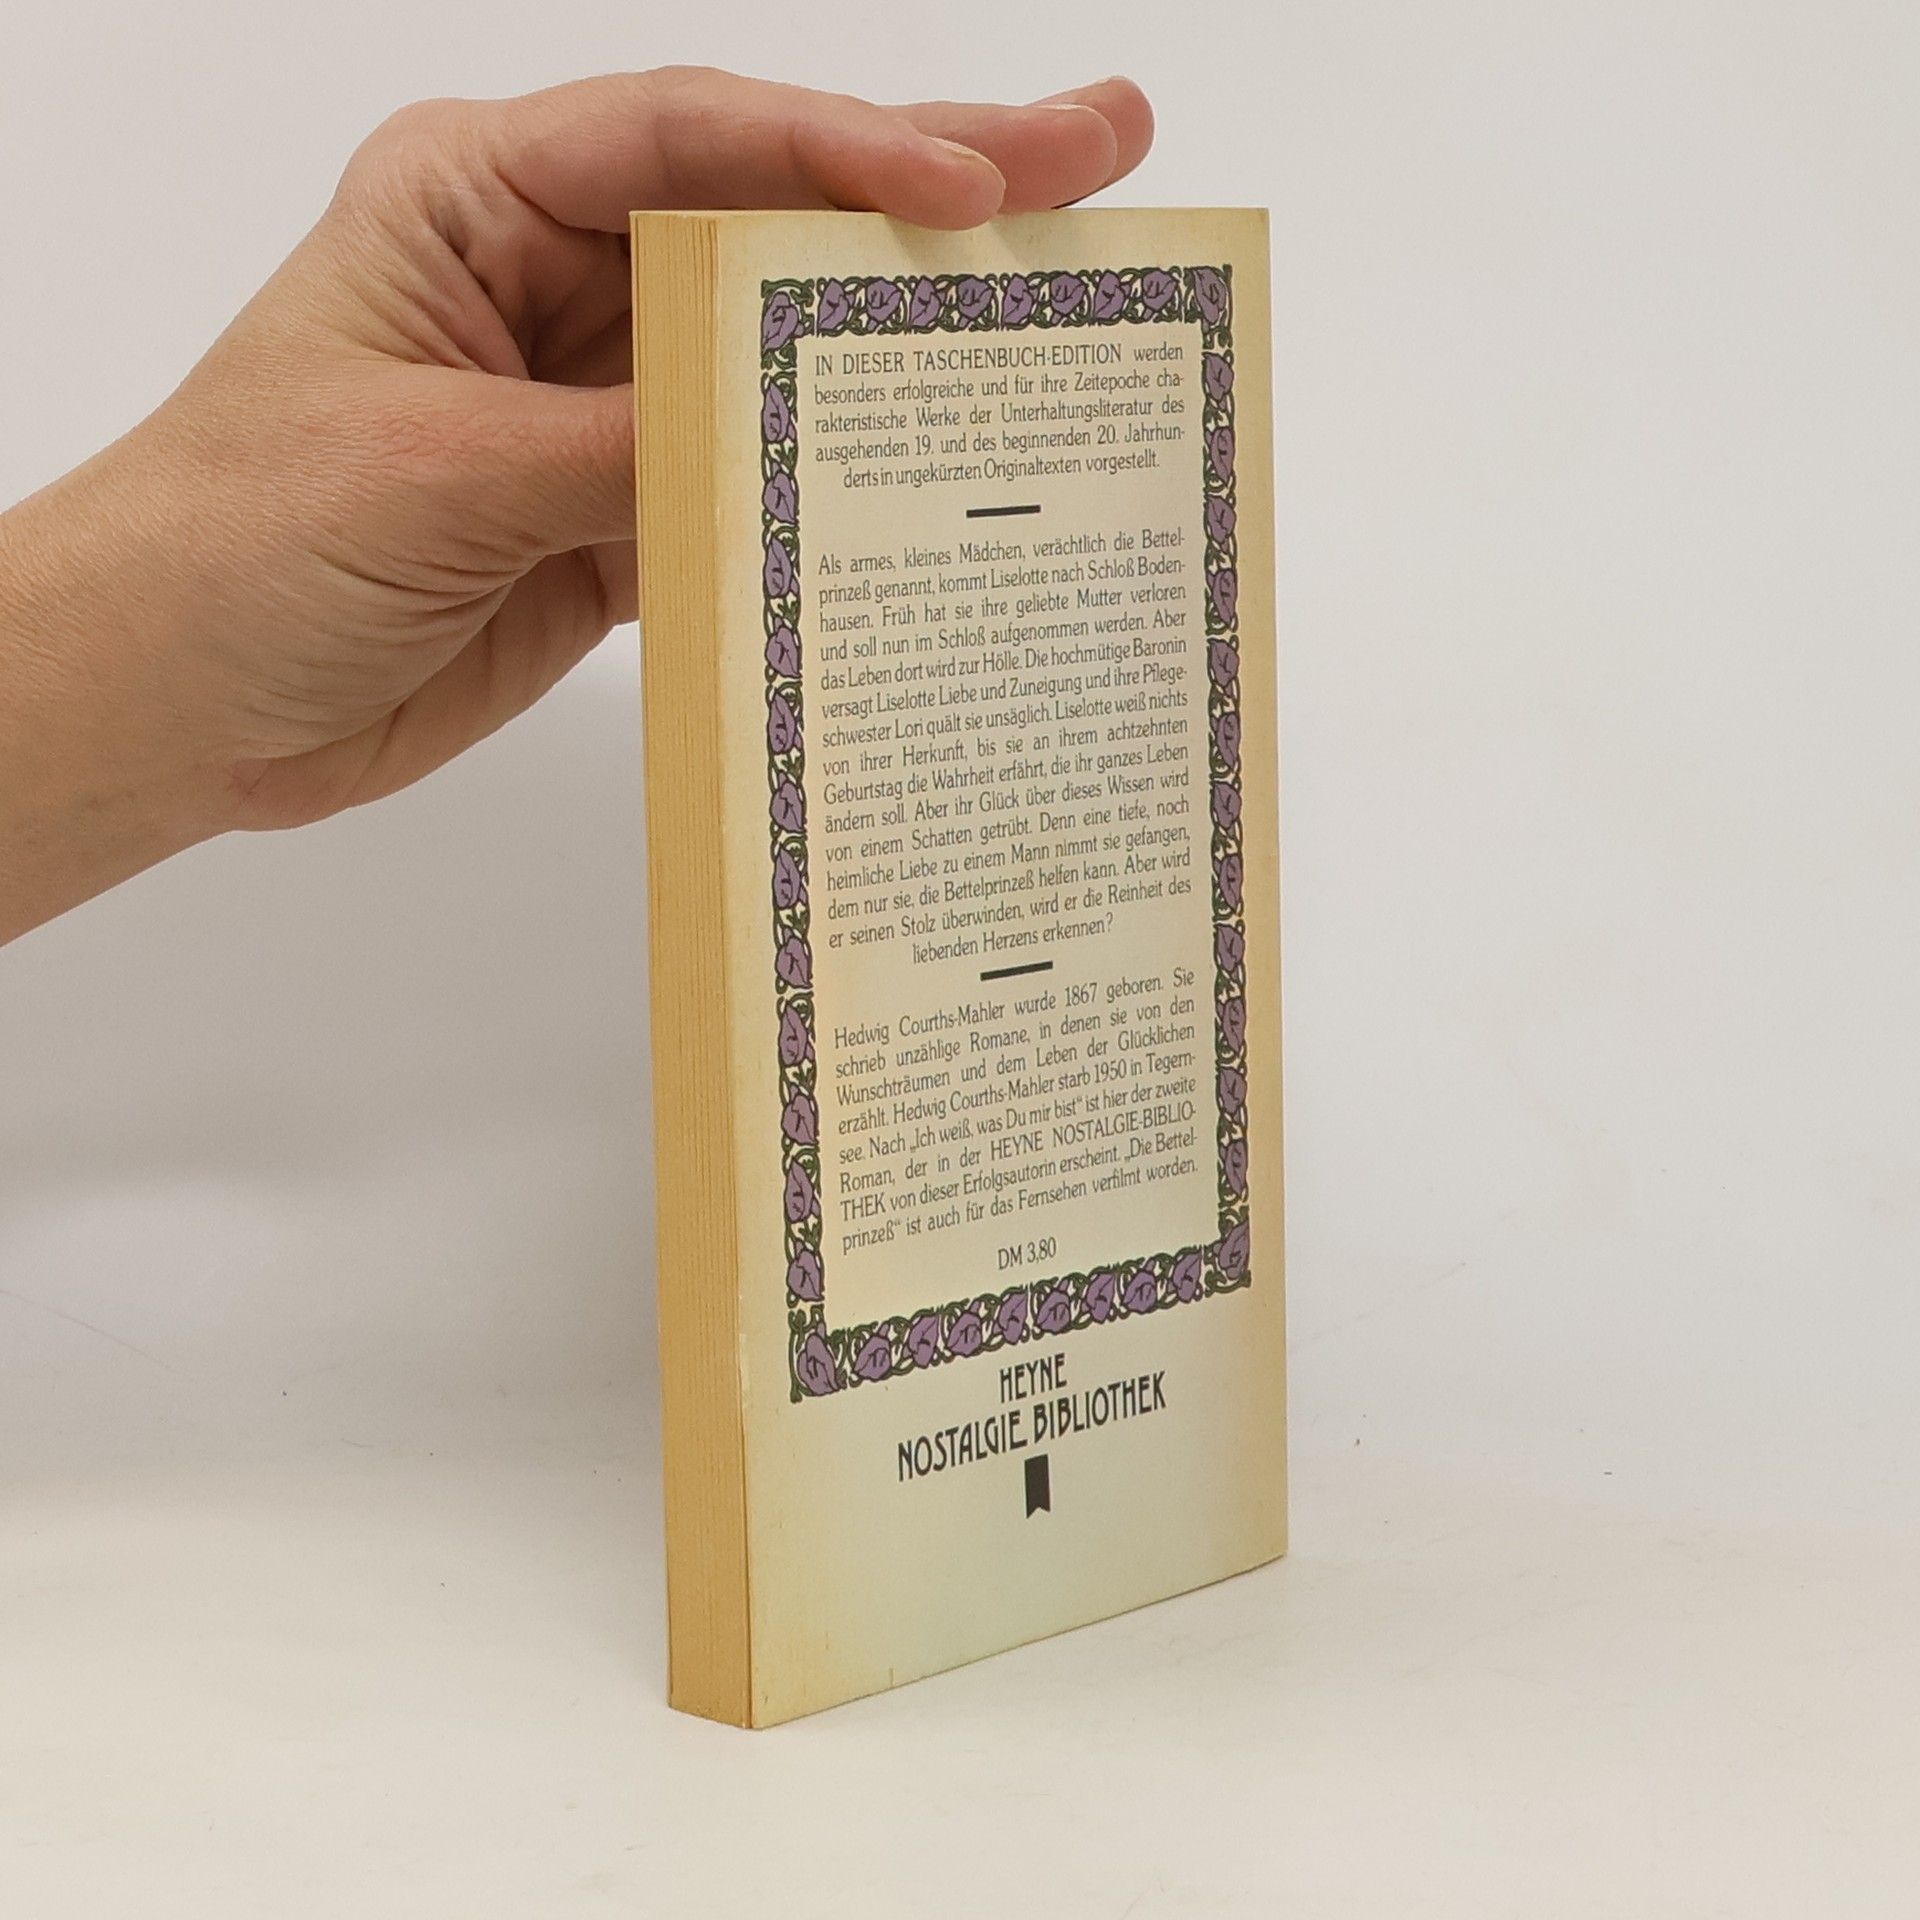 IN DIESER TASCHENBUCH-EDITION werden
besonders erfolgreiche und für ihre Zeitepoche cha-
rakteristische Werke der Unterhaltungsliteratur des
ausgehenden 19. und des beginnenden 20. Jahrhun-
derts in ungekürzten Originaltexten vorgestellt.
Als armes, kleines Mädchen, verächtlich die Bettel-
prinzeß genannt, kommt Liselotte nach Schloß Boden-
hausen. Früh hat sie ihre geliebte Mutter verloren
und soll nun im Schloß aufgenommen werden. Aber
das Leben dort wird zur Hölle. Die hochmütige Baronin
versagt Liselotte Liebe und Zuneigung und ihre Pflege-
schwester Lori quält sie unsäglich. Liselotte weiß nichts
von ihrer Herkunft, bis sie an ihrem achtzehnten
Geburtstag die Wahrheit erfährt, die ihr ganzes Leben
ändern soll. Aber ihr Glück über dieses Wissen wird
von einem Schatten getrübt. Denn eine tiefe, noch
heimliche Liebe zu einem Mann nimmt sie gefangen,
dem nur sie, die Bettelprinzeß helfen kann. Aber wird
er seinen Stolz überwinden, wird er die Reinheit des
liebenden Herzens erkennen?
Hedwig Courths-Mahler wurde 1867 geboren. Sie
schrieb unzählige Romane, in denen sie von den
Wunschträumen und dem Leben der Glücklichen
erzählt. Hedwig Courths-Mahler starb 1950 in Tegern-
see. Nach „Ich weiß, was Du mir bist“ ist hier der zweite
Roman, der in der HEYNE NOSTALGIE-BIBLIO-
THEK von dieser Erfolgsautorin erscheint. „Die Bettel-
prinzeß“ ist auch für das Fernsehen verfilmt worden.
DM 3,80
HEYNE
NOSTALGIE BIBLIOTHEK